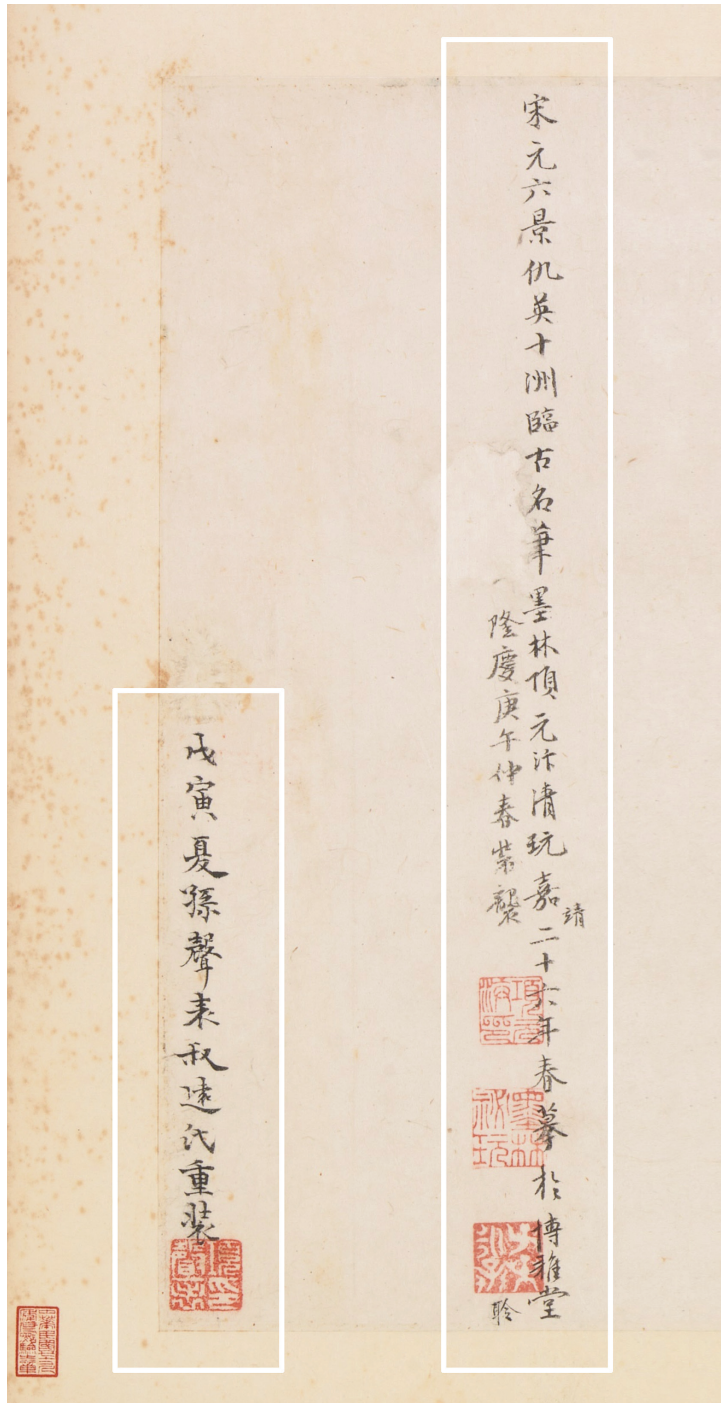 宋元六景仇英十洲臨古名筆墨林項元汴清玩嘉靖二十六年春摹於博雅堂
隆慶庚午仲春裝襲
聆
戊寅夏孫聲表叔遠代重裝